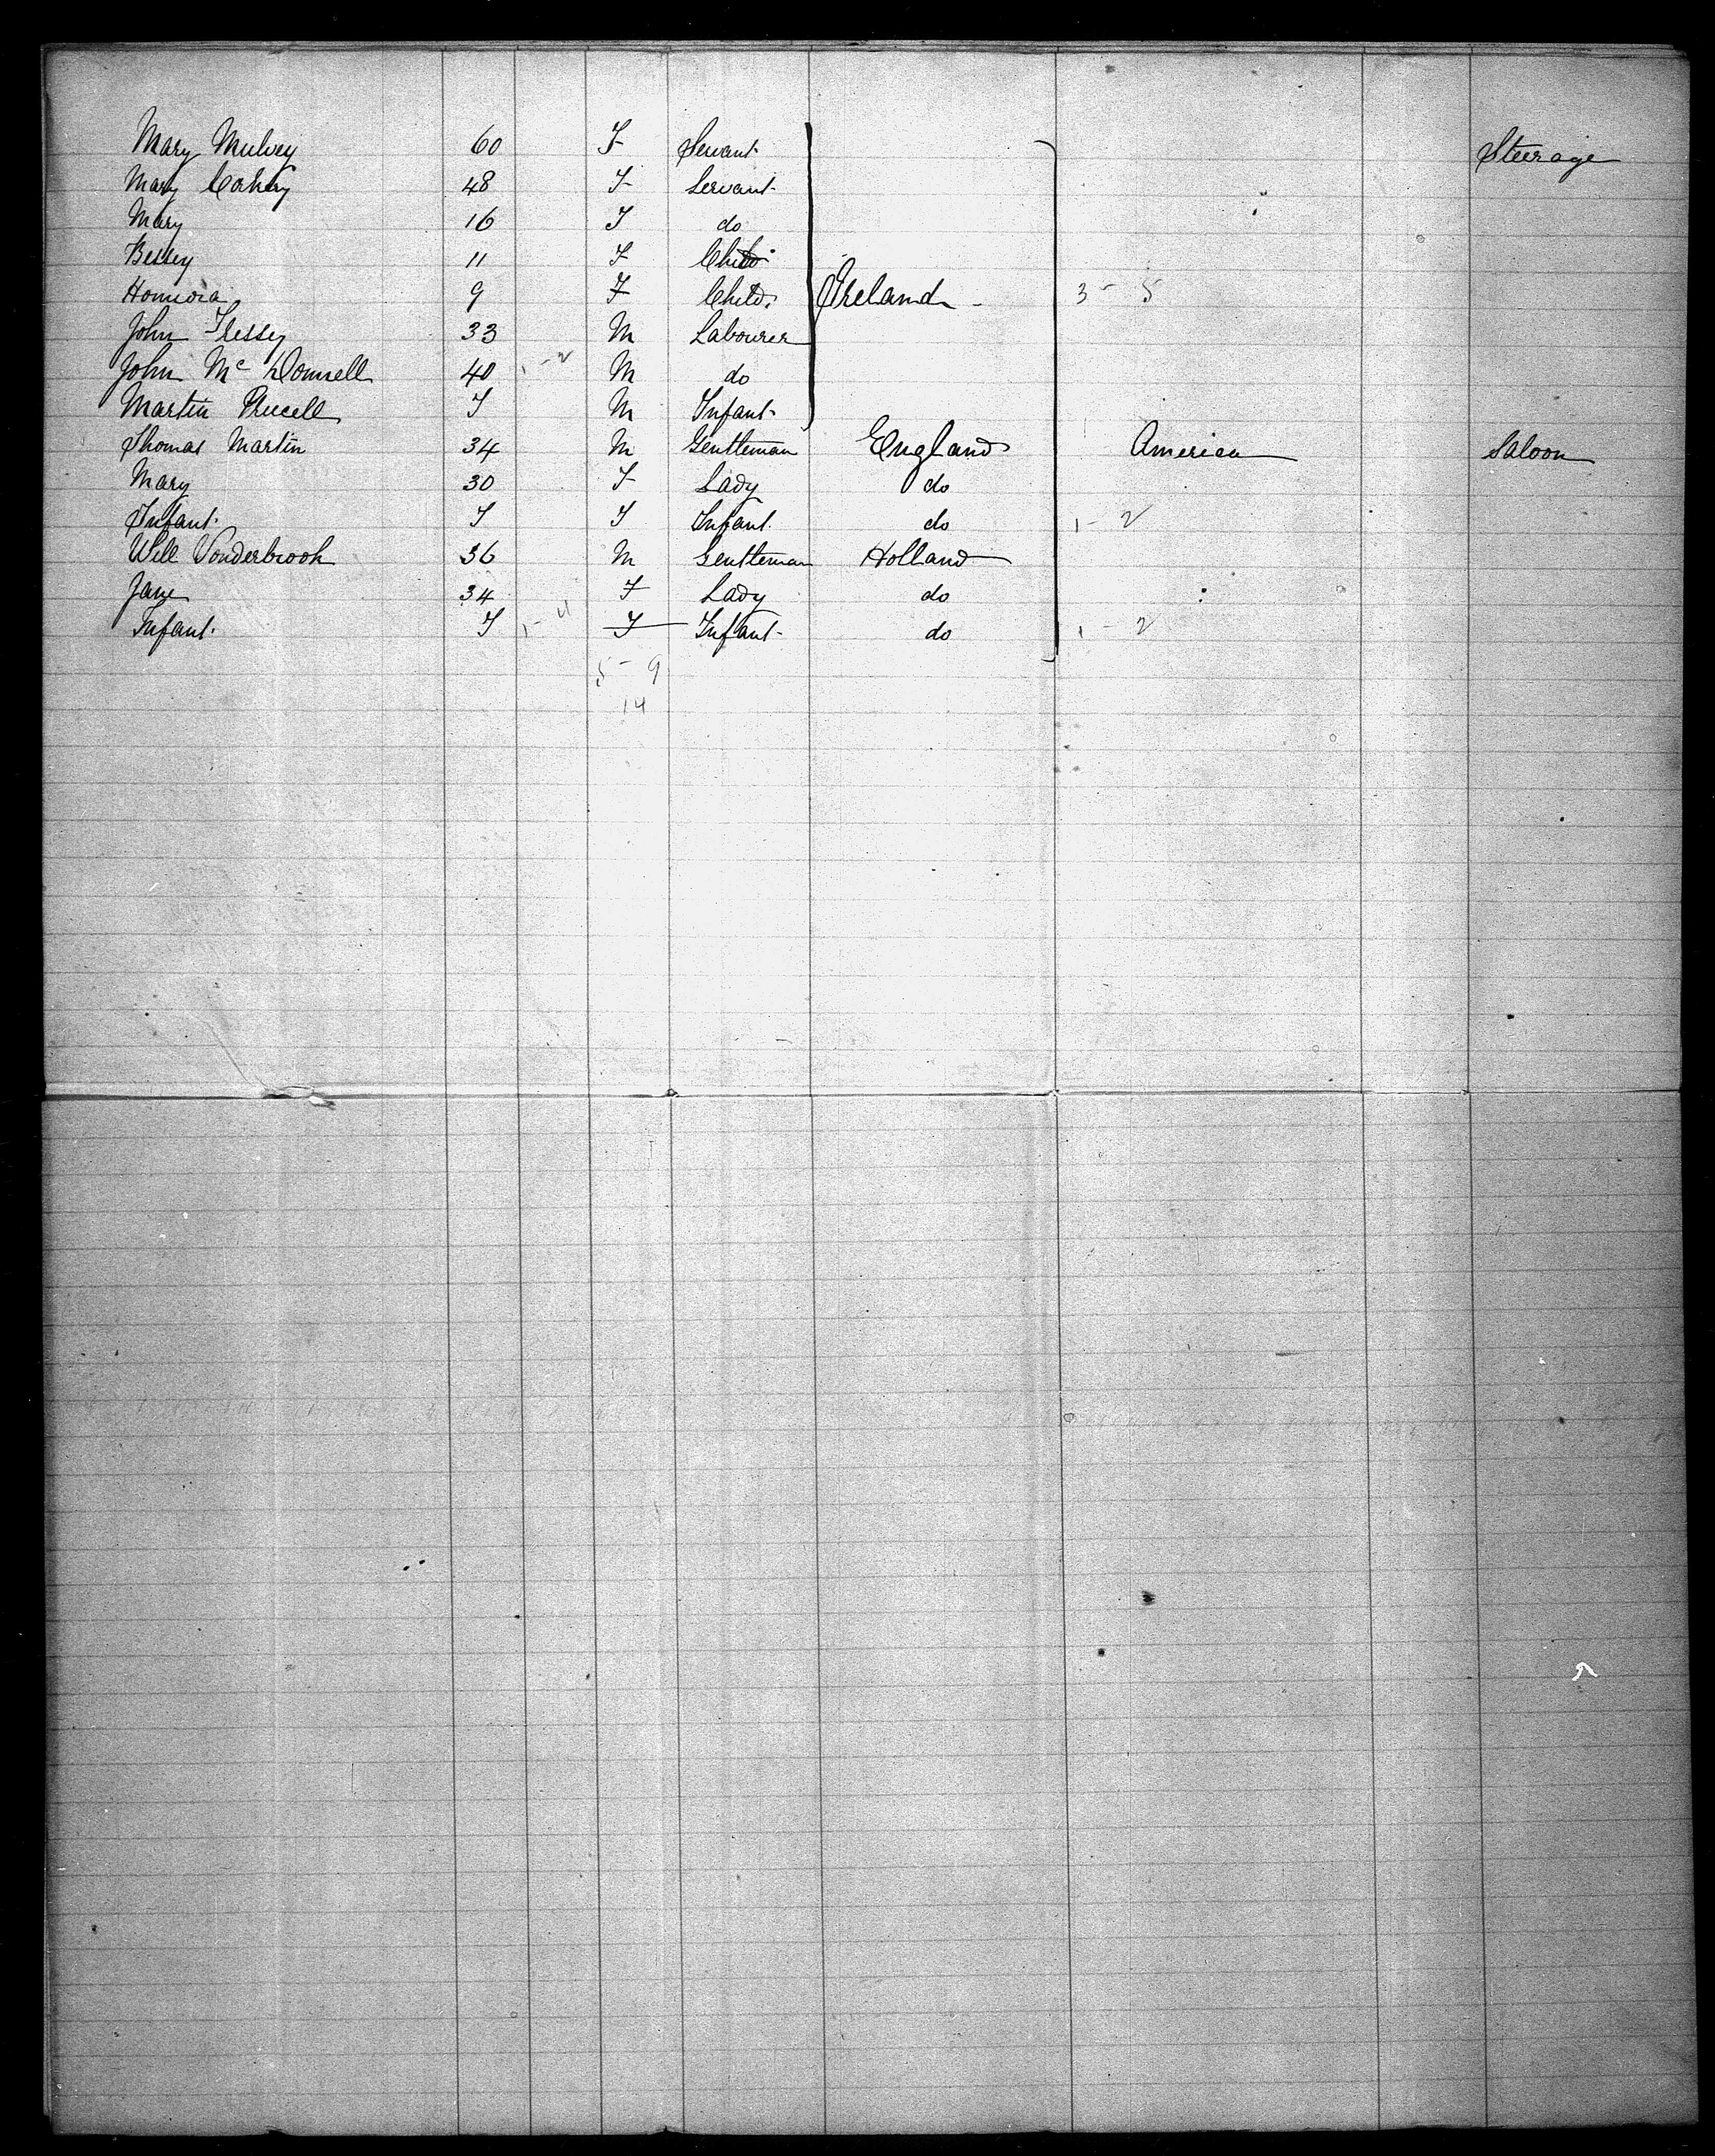 Mary Mulvey 60 F Servant Steerage
Mary 48 F Servant
Mary 16 F do
Bessey 11 F Child
Honnora 9 F Child Ireland 3 - 5
John 33 M Labourer
John Mc Donnell 40 M do
Martin I M Infant
Thomas Martin 34 M Gentleman England American Saloon
Mary 30 F Lady do
Infant I F Infant do 1 - 2
Will Vonderbrook 36 M Gentleman Holland
Jane 34 F Lady do
Infant I 1 - 4 F Infant do 1 - 2
5 - 9
14